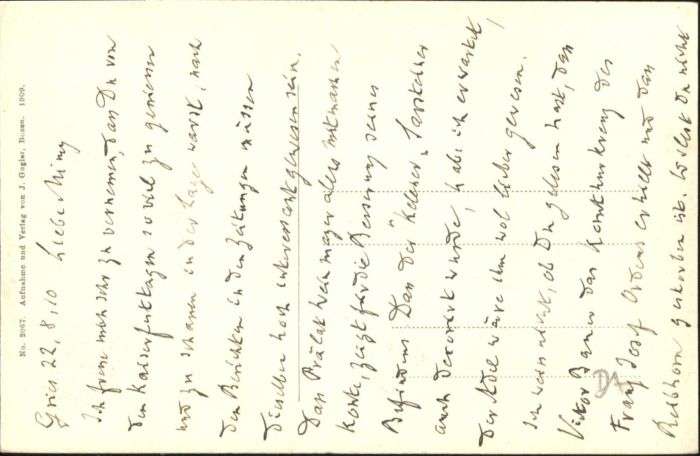 No. 2067. Aufnahme und Verlag von J. Gugler, Bozen. 1909.
Gries 22, 8, 10 Liebe Mimy
Ich freue mich sehr zu vernemen, dass Du von
den Kaiserfesttagen so viel zu geniessen
und zu schauen in der Lage warst; nach
den Berichten in den Zeitungen müssen
dieselben hoch interessant gewesen sein.
Dass Prälat Weinmayer alles mitmachen
konte, zeigt für die Besserung seines
Befindens. Dass der "Kellener"
auch decorirt wurde, habe ich erwartet,
der Adel wäre ihm wol lieber gewesen.
Ich weis nicht, ob Du gelesen hast, dass
Viktor Bauer das Komthurkreuz des
Franz Josef Ordens erhielt und dass
Rebhorn gestorben ist. Willst Du nicht
DA